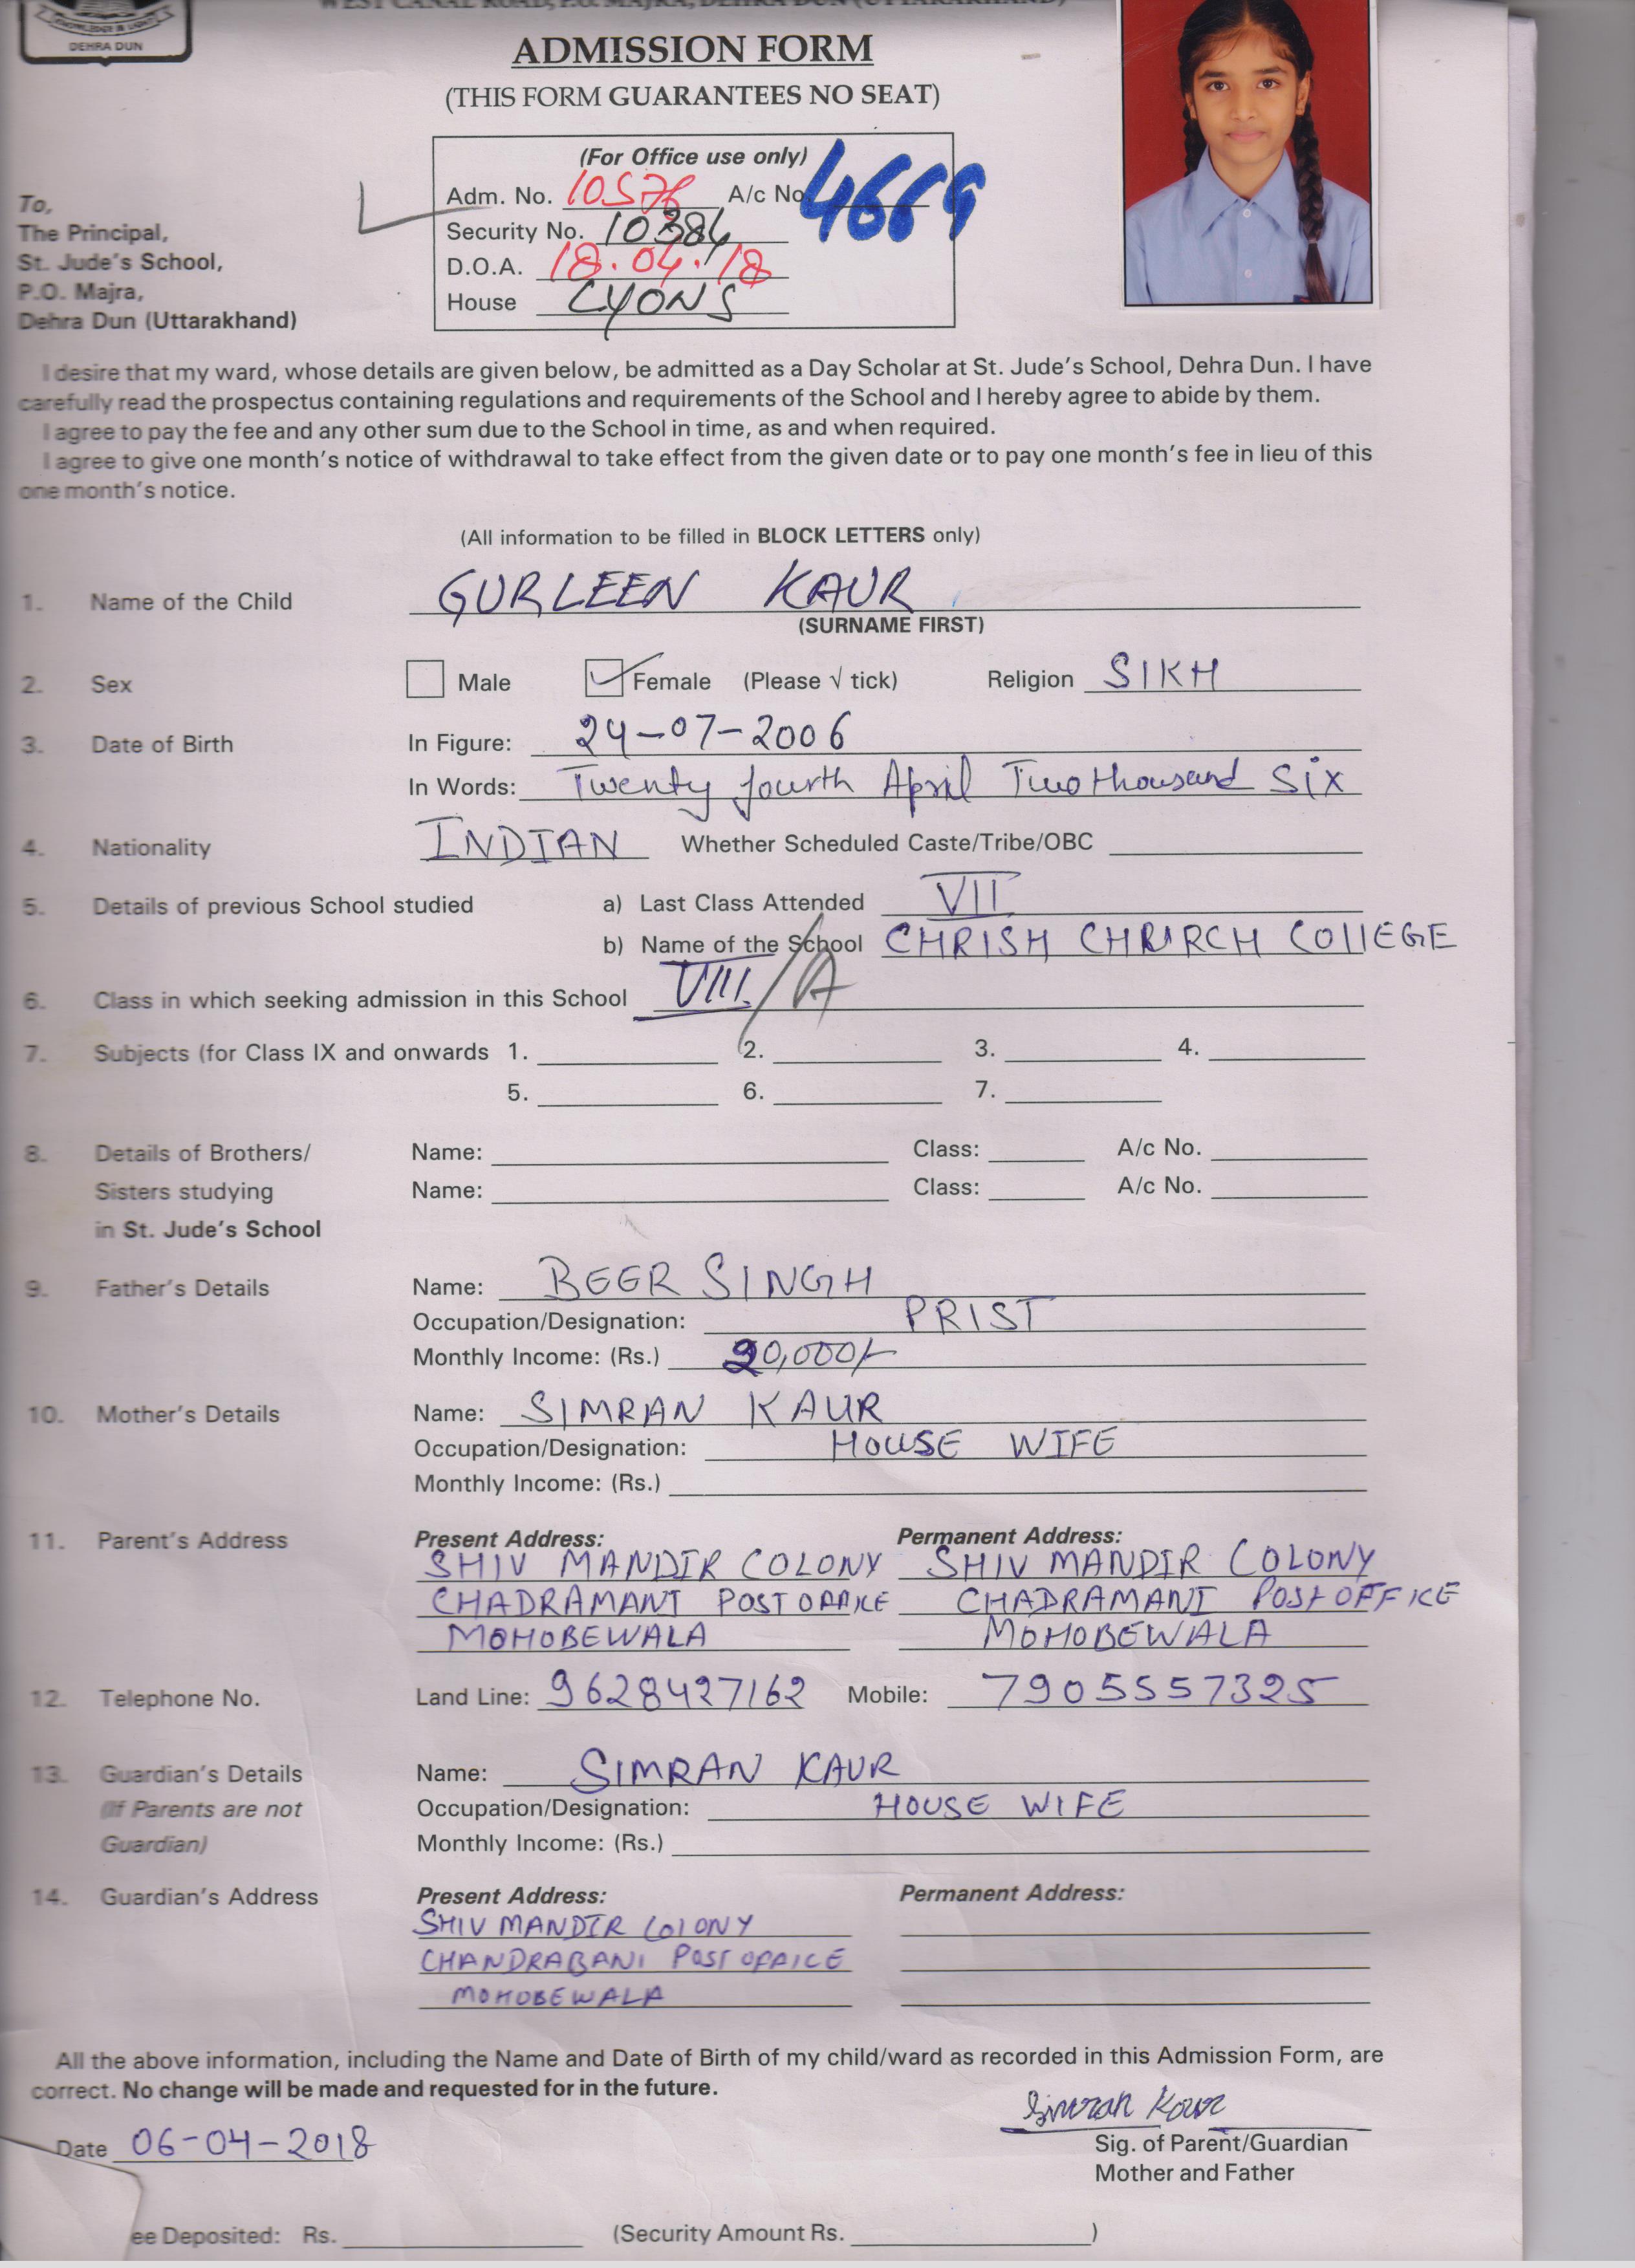 WEST CANAL ROAD, P.O. MAJRA, DEHRA DUN (UTTARAKHAND)
KNOWLEDGE IS LIGHT
DEHRA DUN
ADMISSION FORM
(THIS FORM GUARANTEES NO SEAT)
(For Office use only)
Adm. No. 10576 A/c No. 4669
Security No. 10384
D.O.A. 18.04.18
House LYONS
To,
The Principal,
St. Jude's School,
P.O. Majra,
Dehra Dun (Uttarakhand)
I desire that my ward, whose details are given below, be admitted as a Day Scholar at St. Jude's School, Dehra Dun. I have
carefully read the prospectus containing regulations and requirements of the School and I hereby agree to abide by them.
I agree to pay the fee and any other sum due to the School in time, as and when required.
I agree to give one month's notice of withdrawal to take effect from the given date or to pay one month's fee in lieu of this
one month's notice.
(All information to be filled in BLOCK LETTERS only)
1. Name of the Child GURLEEN KAUR
(SURNAME FIRST)
2. Sex Male Female (Please √ tick) Religion SIKH
3. Date of Birth In Figure: 24-07-2006
In Words: Twenty fourth April Two thousand Six
4. Nationality INDIAN Whether Scheduled Caste/Tribe/OBC
5. Details of previous School studied a) Last Class Attended VII
b) Name of the School CHRISH CHRIRCH COllEGE
6. Class in which seeking admission in this School VIII/A
7. Subjects (for Class IX and onwards 1. 2. 3. 4.
5. 6. 7.
8. Details of Brothers/ Name: Class: A/c No.
Sisters studying Name: Class: A/c No.
in St. Jude's School
9. Father's Details Name: BEER SINGH
Occupation/Designation: PRIST
Monthly Income: (Rs.) 20,000/-
10. Mother's Details Name: SIMRAN KAUR
Occupation/Designation: HOUSE WIFE
Monthly Income: (Rs.)
11. Parent's Address Present Address: Permanent Address:
SHIV MANDIR COLONY SHIV MANDIR COLONY
CHADRAMANI POST OFFICE CHADRAMANI POST OFFICE
MOHOBEWALA MOHOBEWALA
12. Telephone No. Land Line: 9628427162 Mobile: 7905557325
13. Guardian's Details Name: SIMRAN KAUR
(If Parents are not Occupation/Designation: HOUSE WIFE
Guardian) Monthly Income: (Rs.)
14. Guardian's Address Present Address: Permanent Address:
SHIV MANDIR COlONY
CHANDRABANI POST OFFICE
MOHOBEWALA
All the above information, including the Name and Date of Birth of my child/ward as recorded in this Admission Form, are
correct. No change will be made and requested for in the future.
Simran Kour
Date 06-04-2018
Sig. of Parent/Guardian
Mother and Father
ee Deposited: Rs. (Security Amount Rs. )